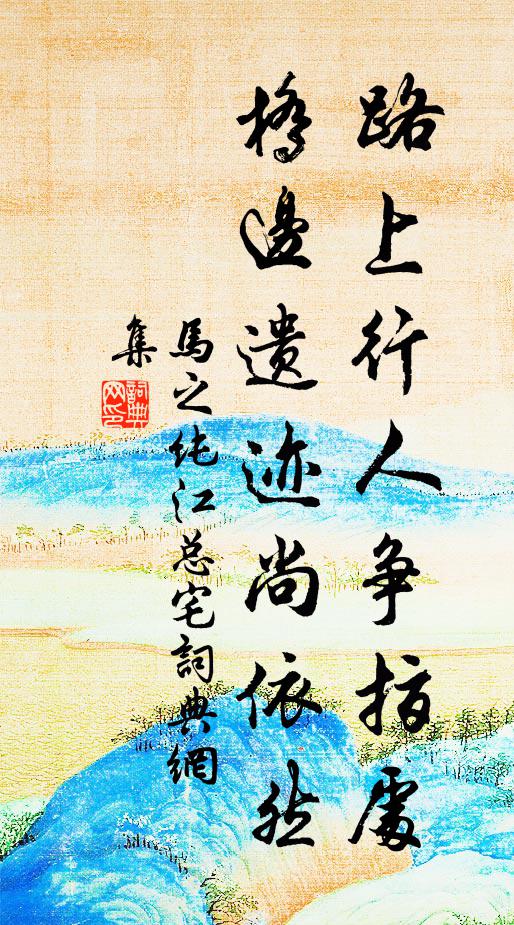 路上行人争指處
橋邊遺迹尚依然
馬之纯江总宅詞典網
集
詞典網印